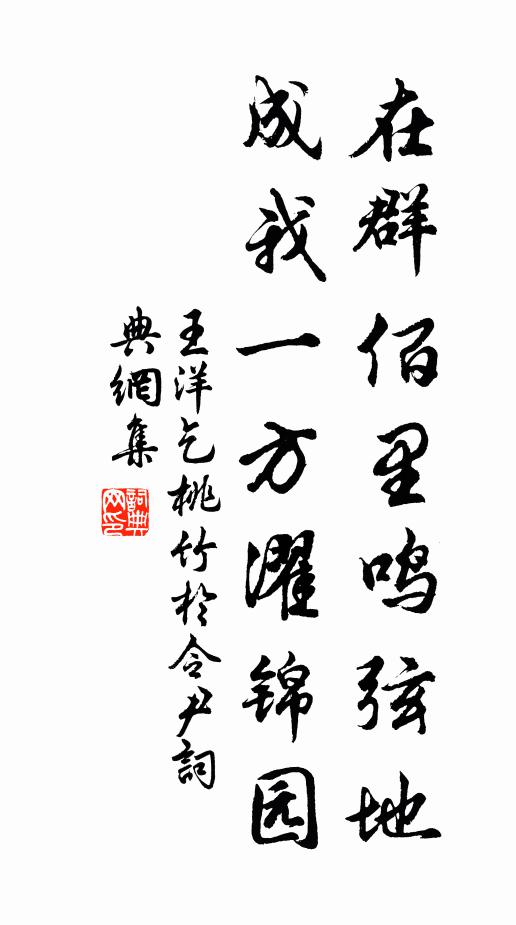 在群佰里鸣弦地
成我一方濯锦园
王洋乞桃竹於令尹詞
典網集
詞典網印